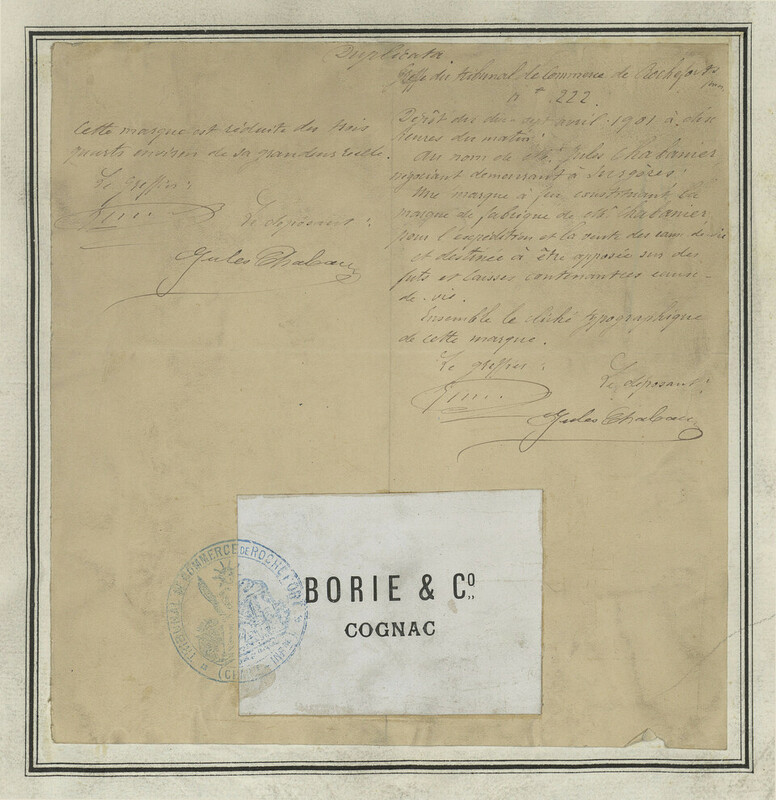 Duplicata
Cette marque est réduite du trois
quarts environ de sa grandeur réelle.
Le greffier :
Le déposant :
Jules Chabanier
Greffe du tribunal de Commerce de Rochefort s/
n° 222.
Dépôt du dix sept avril 1901 à dix
heures du matin.
Au nom de M. Jules Chabanier
négociant demeurant à Surgères :
Une marque à feu constituant la
marque de fabrique de M. Chabanier
pour l'expédition et la vente des eaux-de-vie
et destinée à être apposée sur des
futs et caisses contenant ces eaux-
de-vie.
Ensemble le cliché typographique
de cette marque.
Le greffier :
Le déposant :
Jules Chabanier
TRIBUNAL DE COMMERCE DE ROCHEFORT
(CHARTE INFRE)
BORIE & Co.
COGNAC